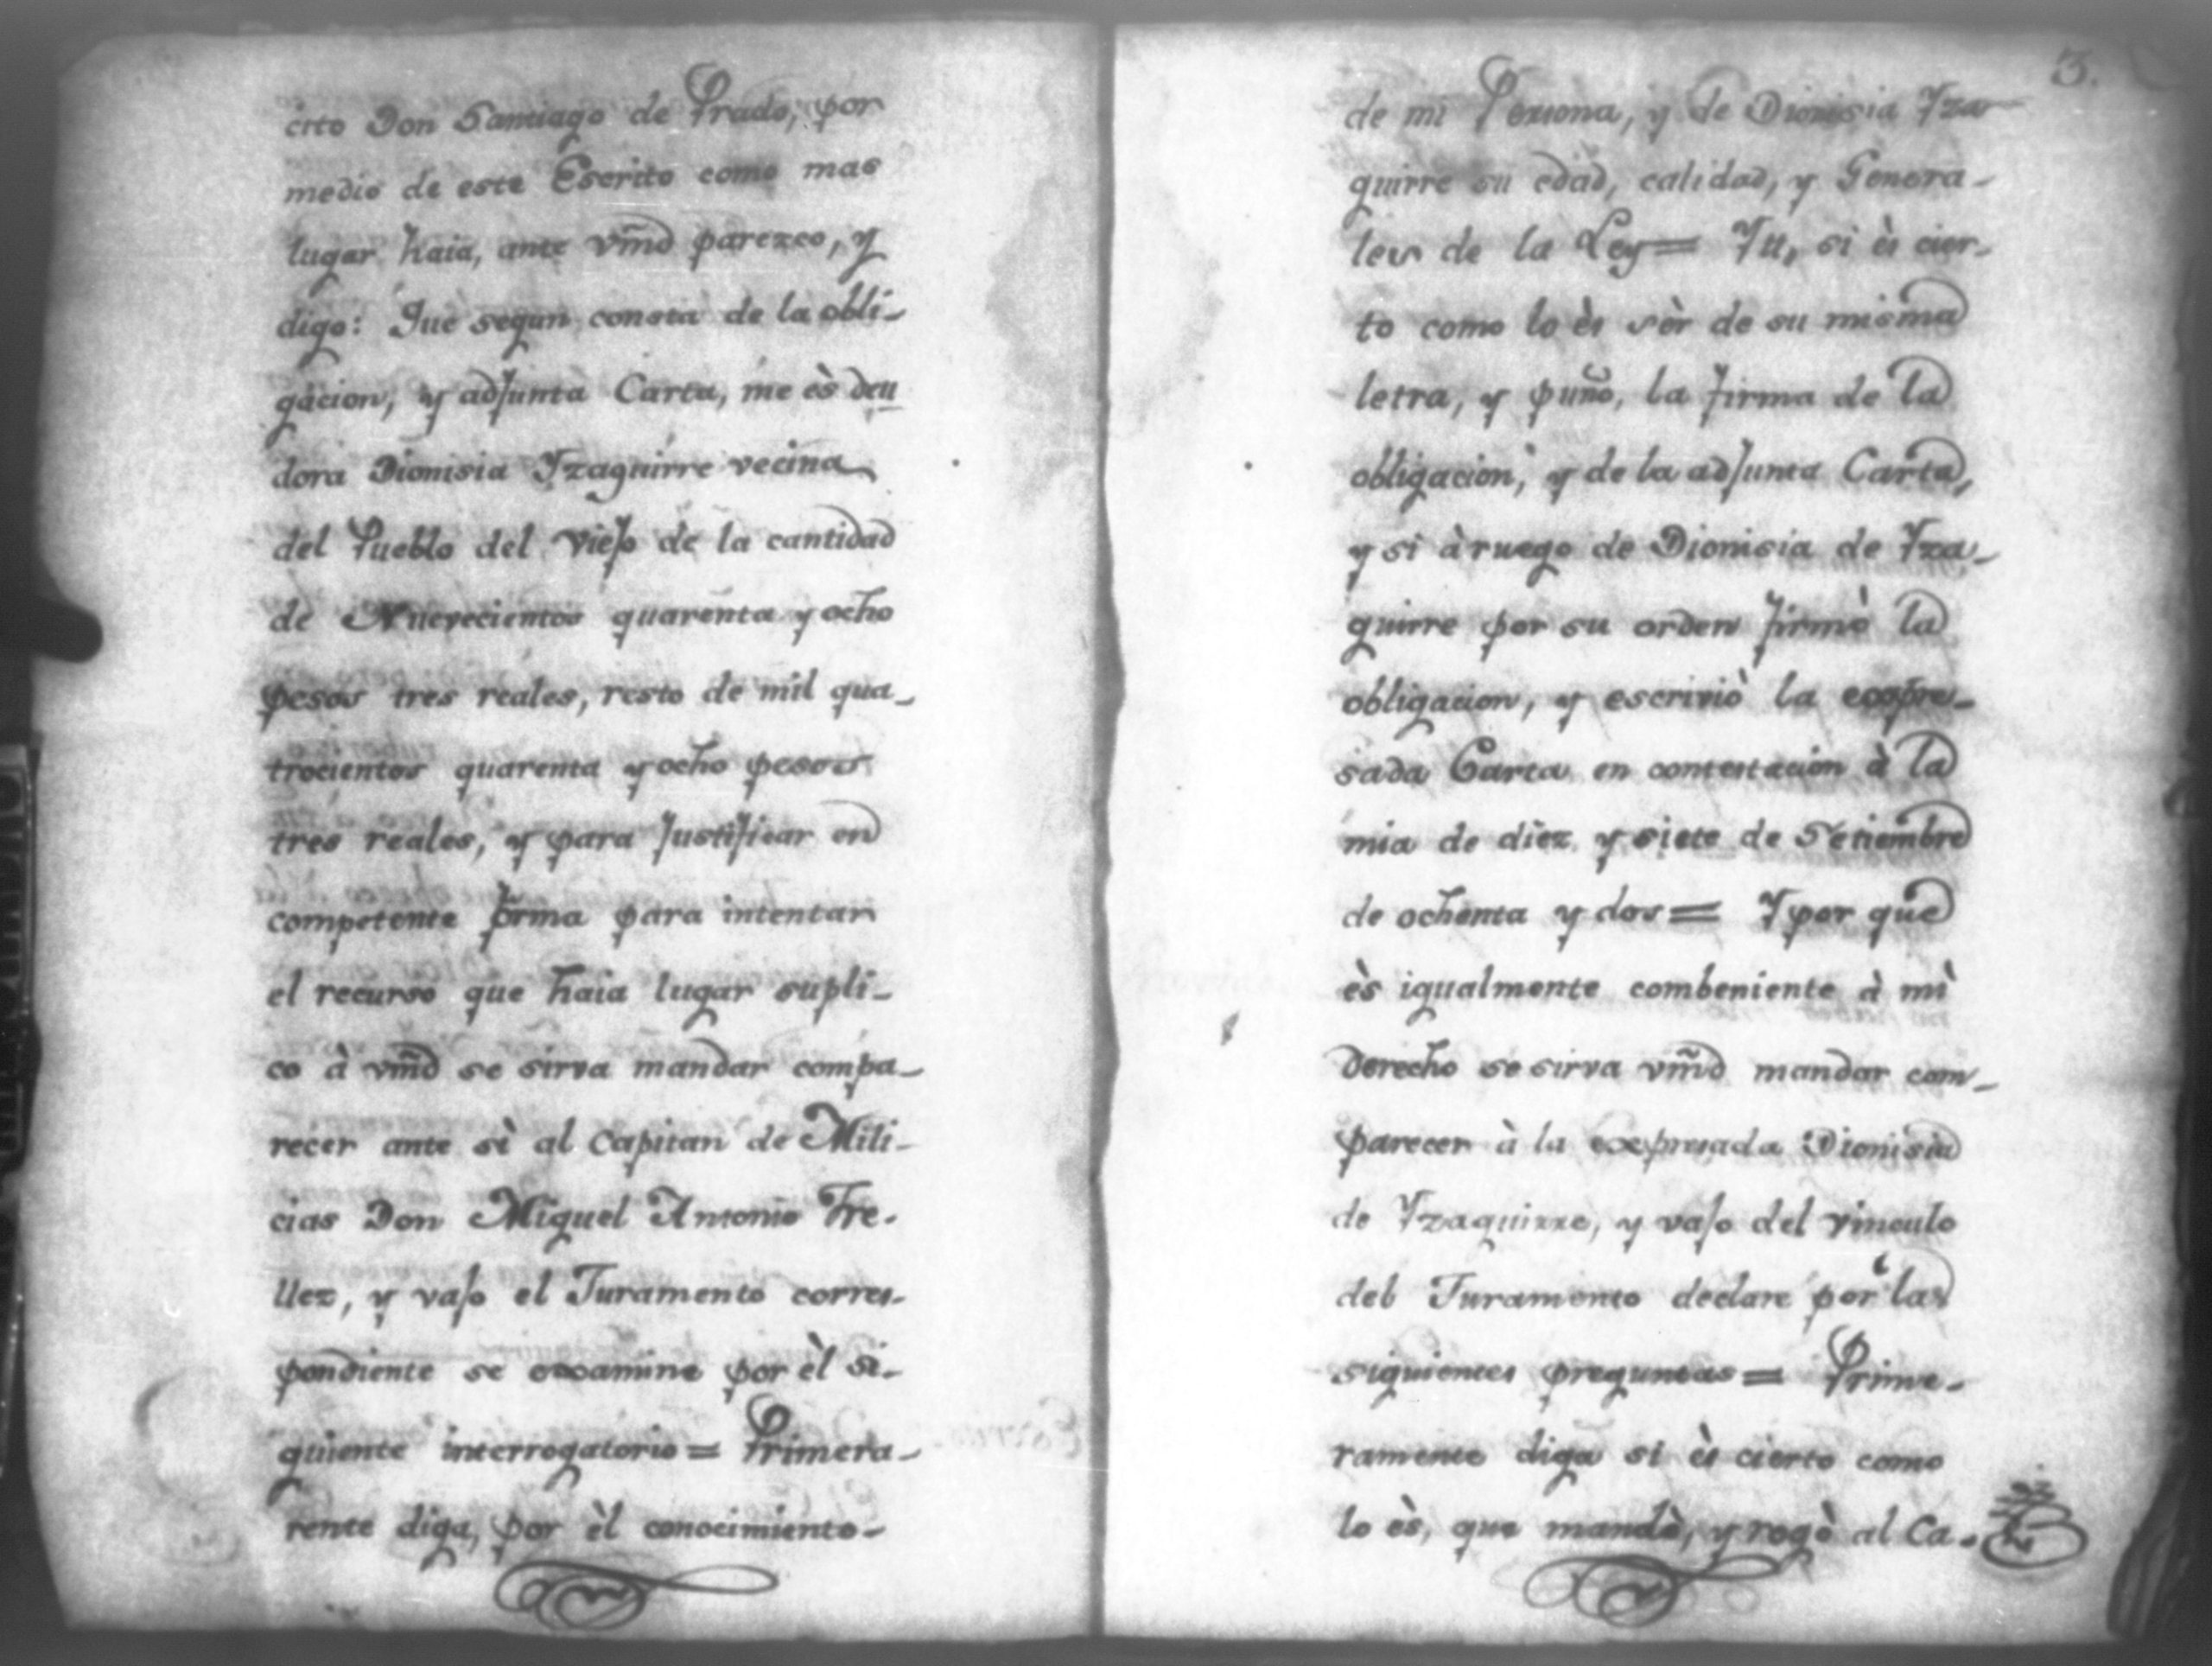 cito Don Santiago de Prado, por
medio de este Escrito como mas
lugar haia, ante vm̃d parezco, y
digo: Que segun consta de la obli-
gacion, y adjunta Carta, me ès deu
dora Dionisia Yzaguirre vecina
del Pueblo del Viejo de la cantidad
de Nuevecientos quarenta y ocho
pesos tres reales, resto de mil qua-
trocientos quarenta y ocho pesos
tres reales, y para Justificar en
competente forma para intentar
el recurso que haia lugar supli-
co à vm̃d se sirva mandar compa-
recer ante sì al Capitan de Mili-
cias Don Miguel Antonio Tre-
llez, y vajo el Juramento corres-
pondiente se examine por èl si-
guiente interrogatorio = Primera-
rente diga, por èl conocimiento-
3.
de mi Persona, y de Dionisia Yza
guirre su edad, calidad, y Genera-
les de la Ley = Yt, si ès cier-
to como lo ès sèr de su misma
letra, y puño, la firma de la
obligacion, y de la adjunta Carta,
y si à ruego de Dionisia de Yza-
guirre por su orden firmò la
obligacion, y escriviò la expre-
sada Carta en contestacion à la
mia de diez y siete de Setiembre
de ochenta y dos = Y por que
ès igualmente combeniente à mì
derecho se sirva vm̃d mandar com-
parecer à la expresada Dionisia
de Yzaguirre, y vajo del vinculo
del Juramento declare por las
siguientes preguntas = Prime-
ramente diga si ès cierto como
lo ès, que mandò, y rogò al Ca-